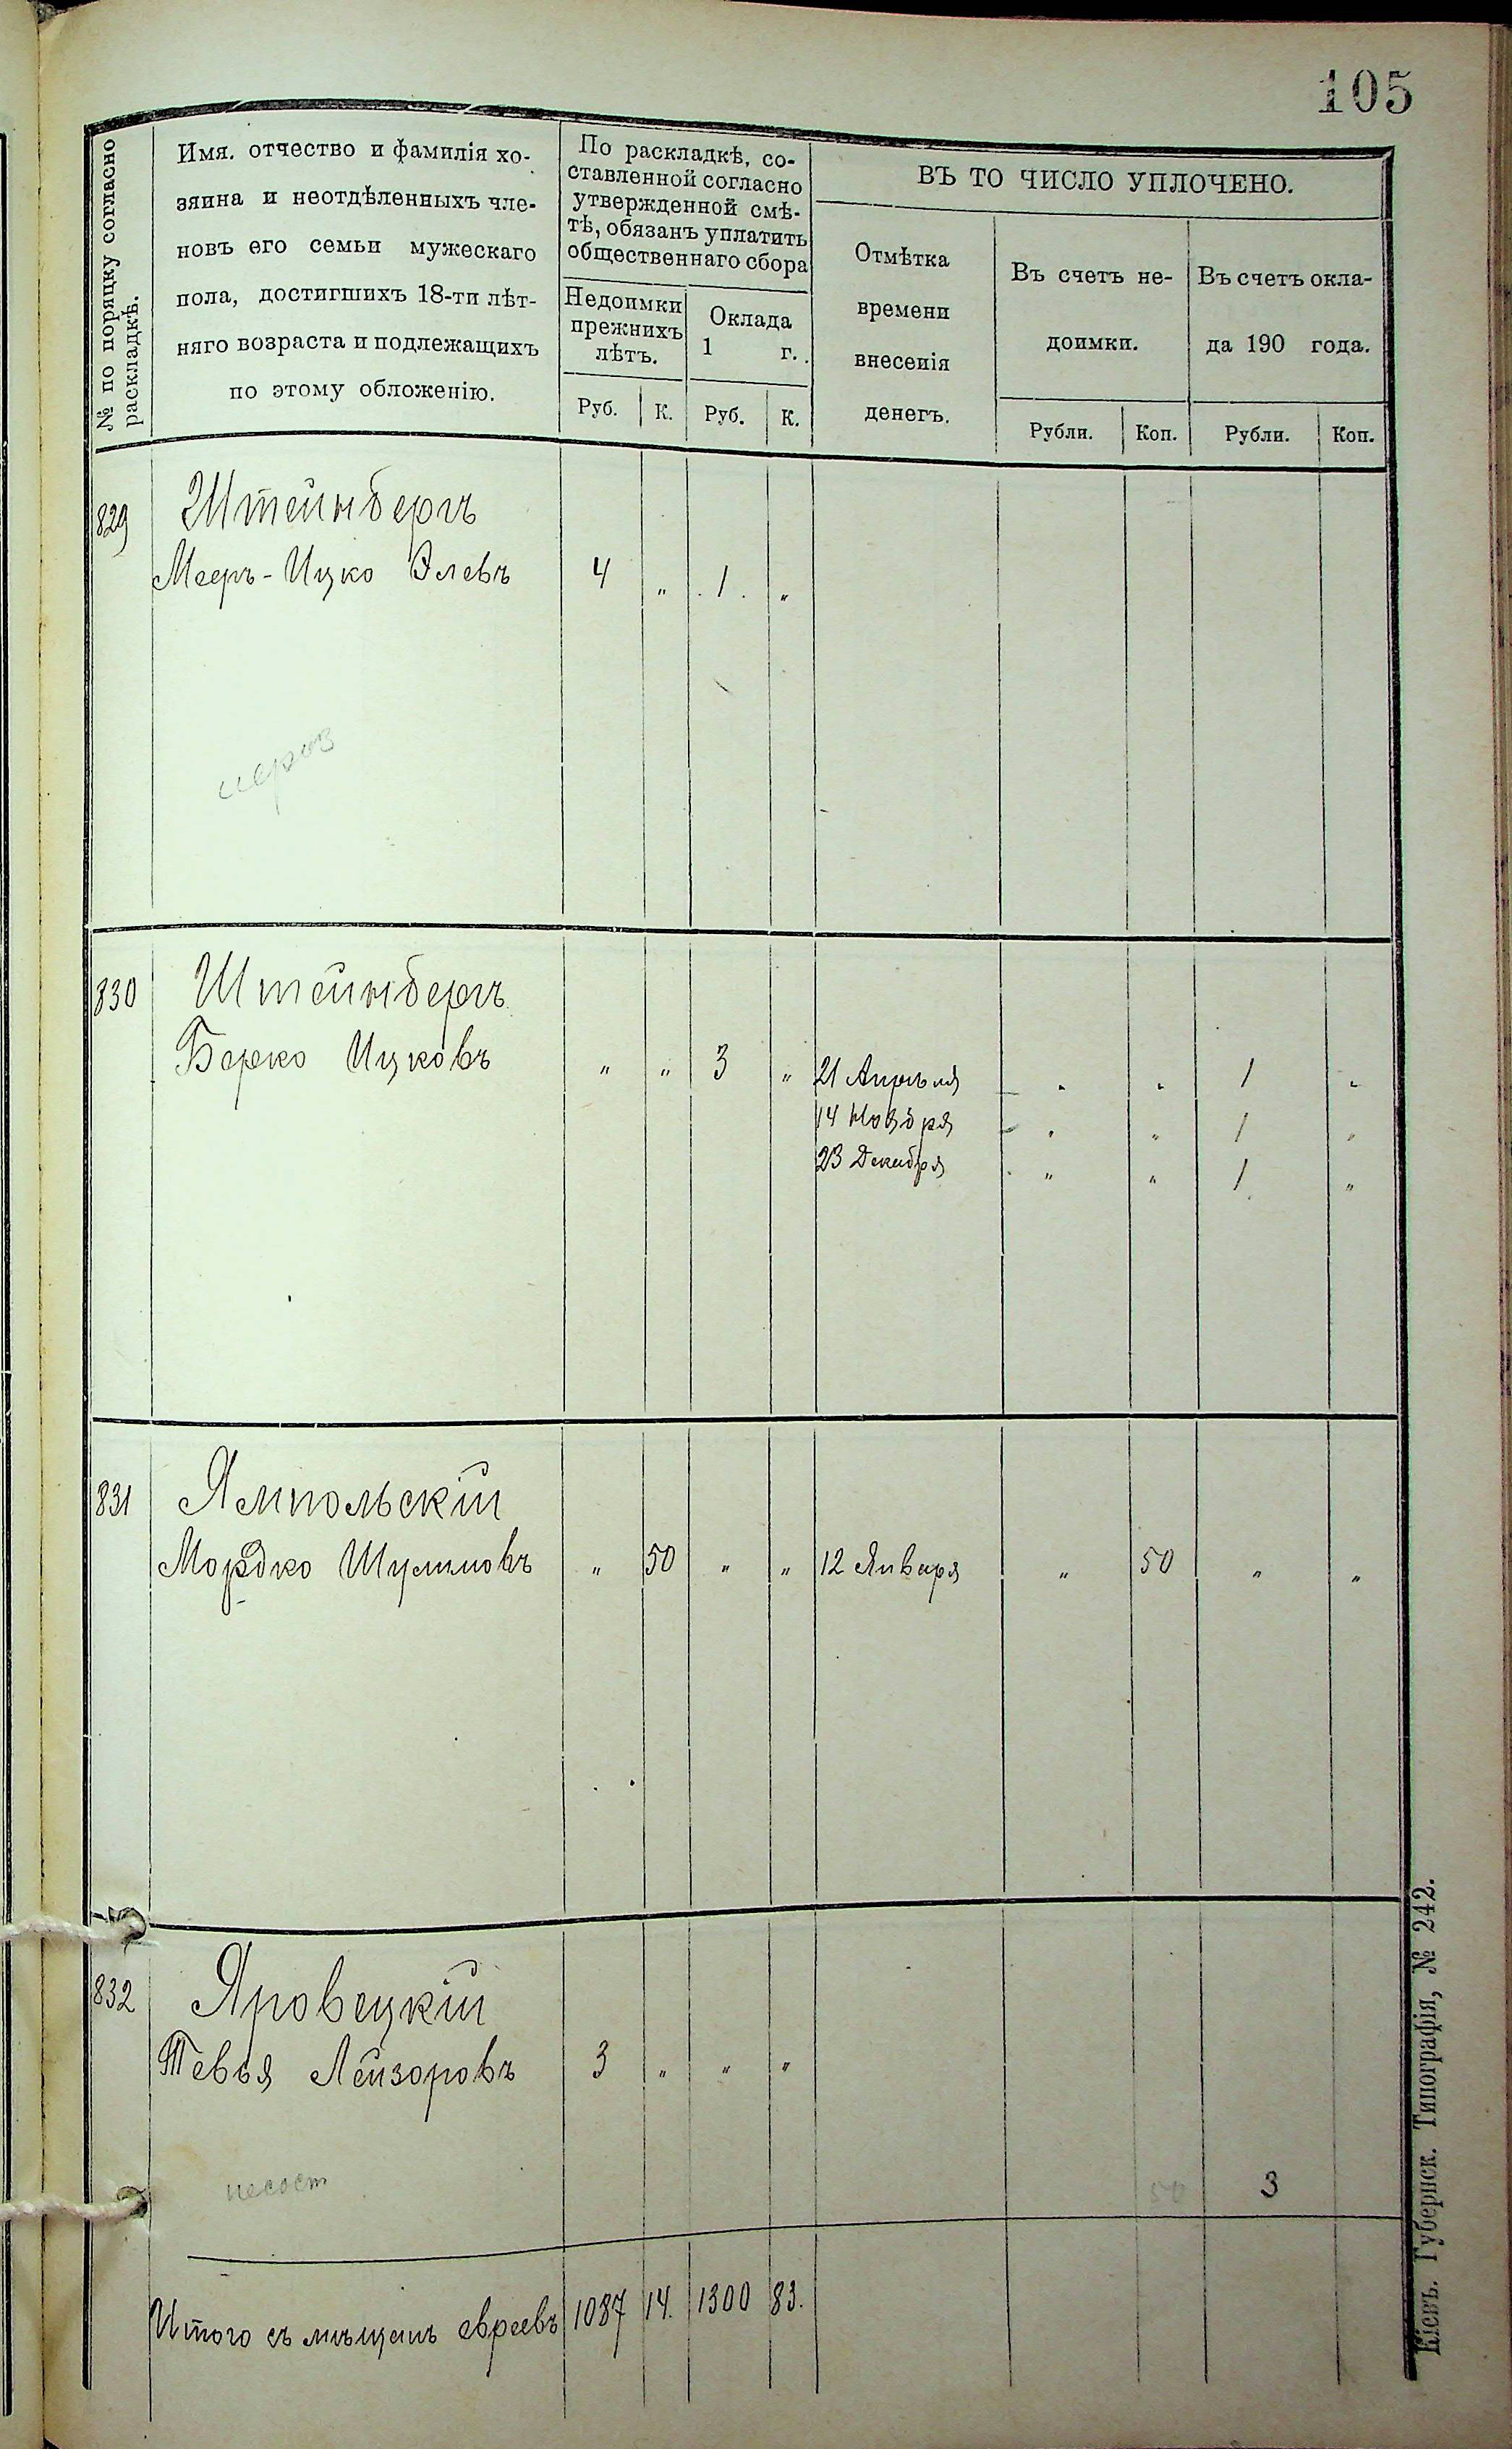 105
№ по порядку согласно
раскладкѣ.
Имя. отчество и фамилія хо-
зяина и неотдѣленныхъ чле-
новъ его семьи мужескаго
пола, достигшихъ 18-ти лѣт-
няго возраста и подлежащихъ
по этому обложенію.
По раскладкѣ, со-
ставленной согласно
утвержденной смѣ-
тѣ, обязанъ уплатить
общественнаго сбора
Недоимки
прежнихъ
лѣтъ.
Оклада
1 г.
Руб. К. Руб. К.
ВЪ ТО ЧИСЛО УПЛОЧЕНО.
Отмѣтка
времени
внесенія
денегъ.
Въ счетъ не-
доимки.
Въ счетъ окла-
да 190 года.
Рубли. Коп. Рубли. Коп.
829 Штейнбергъ
Мееръ-Ицко Элевъ 4 „ 1 „
830 Штейнбергъ
Берко Ицковъ „ „ 3 „ 21 Апрѣля „ „ 1 „
14 Ноября „ „ 1 „
23 Декабря „ „ 1 „
831 Ямпольскій
Мордко Шулимовъ „ 50 „ „ 12 Января „ 50 „ „
832 Яровецкій
Тевья Лейзоровъ 3 „ „ „
несост
50 3
Итого съ мѣщанъ евреевъ 1087 14. 1300 83.
Кіевъ. Губернск. Типографія, № 242.